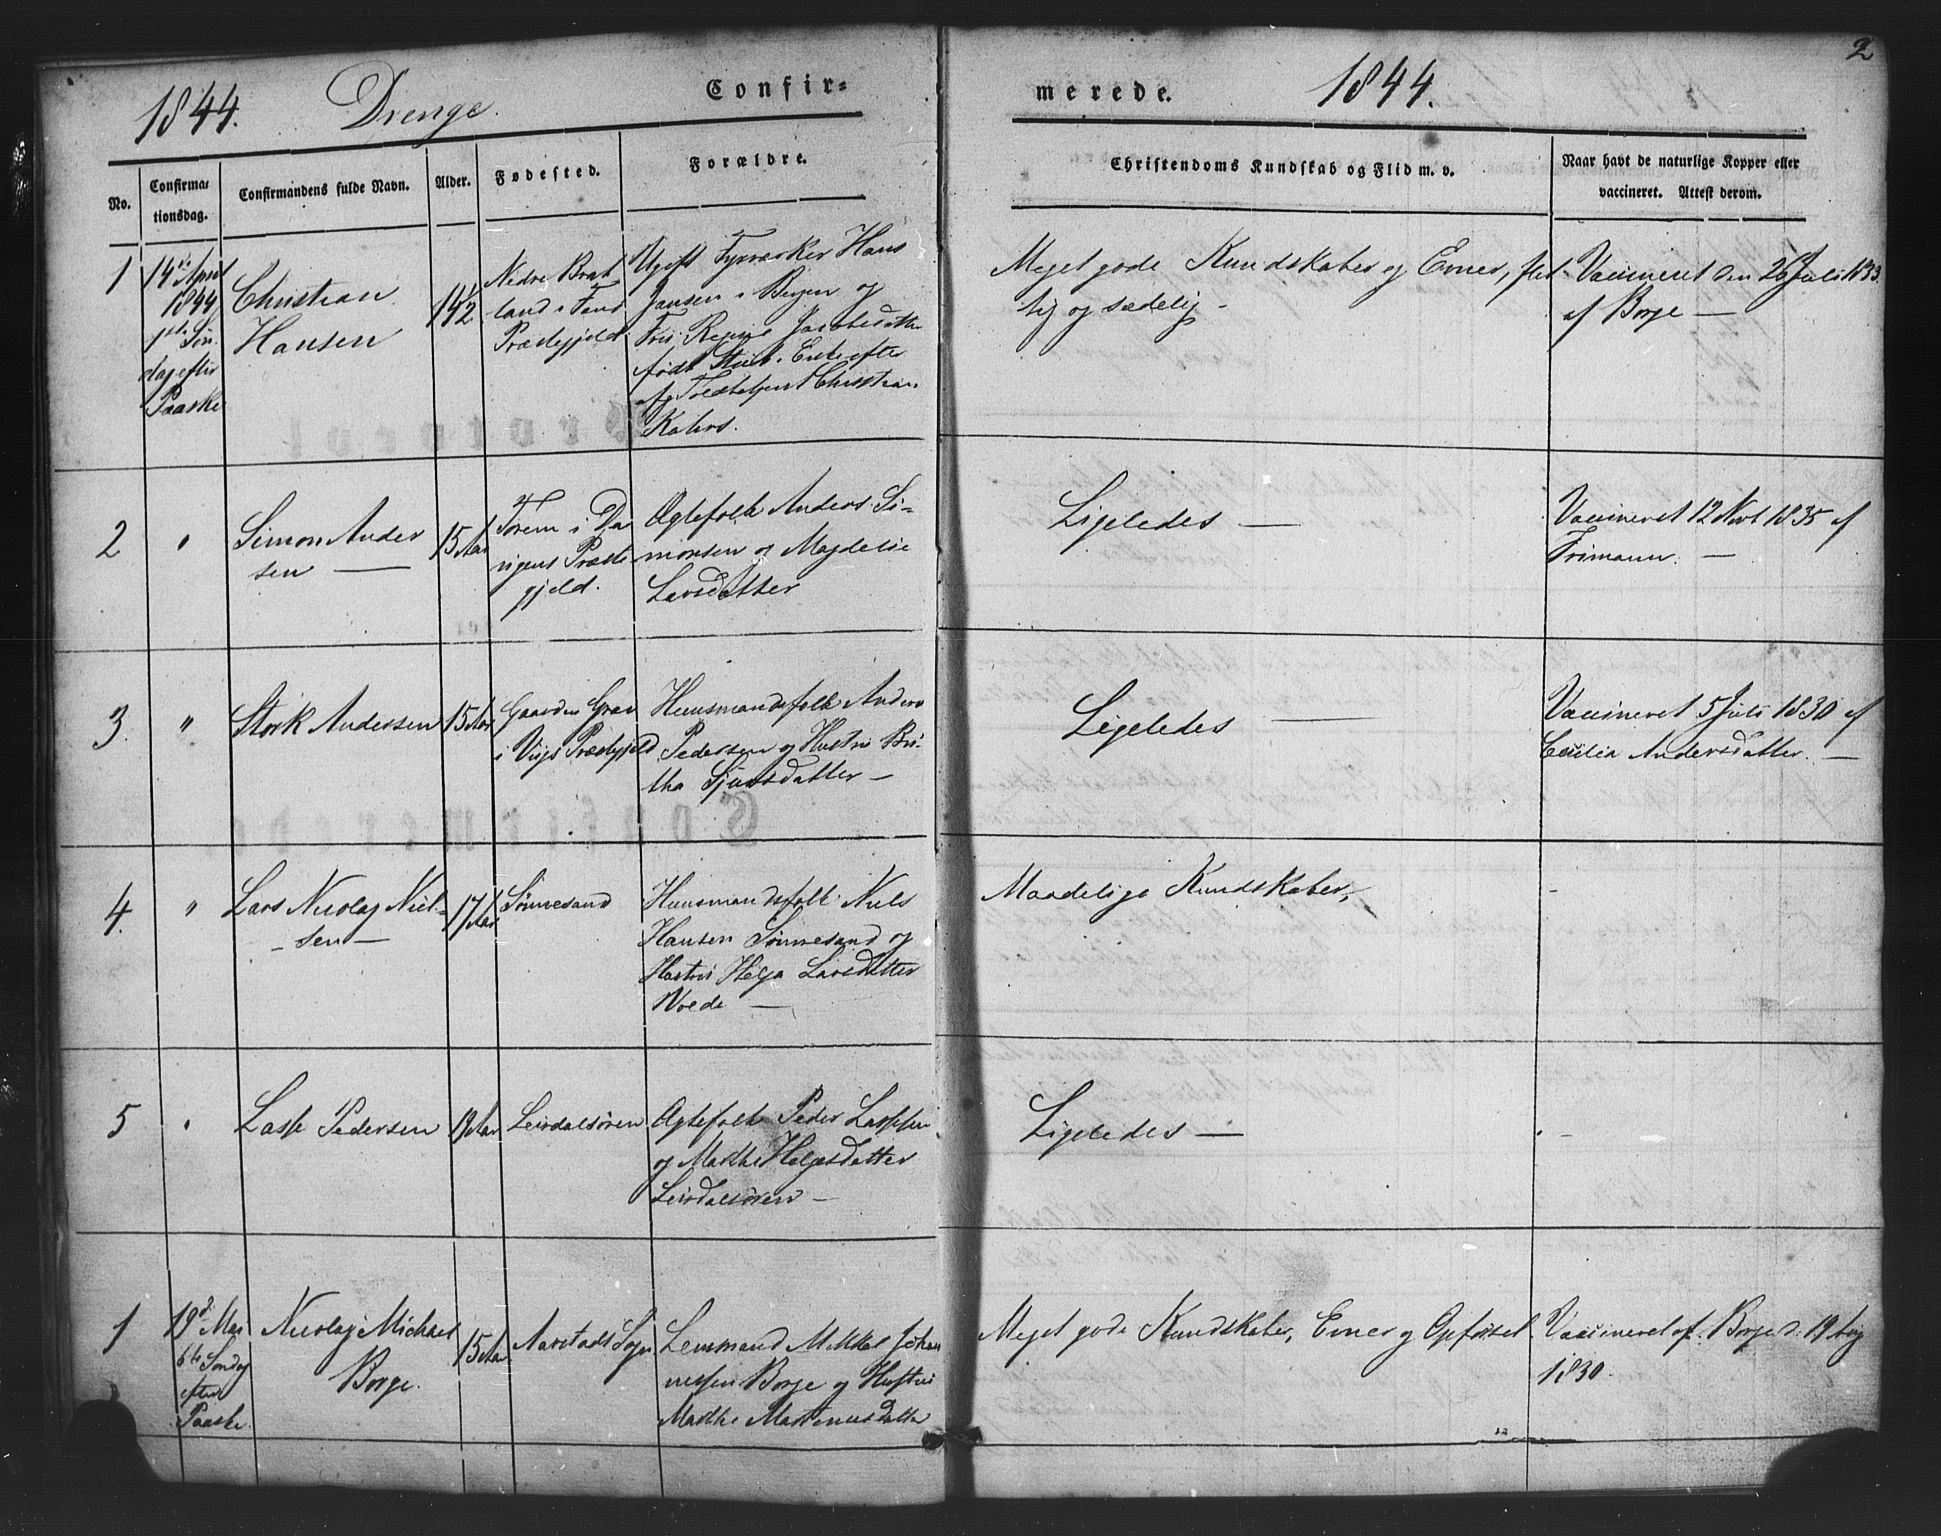 2
1844. Drenge. Confir=
merede. 1844.
No.
Confirma=
tionsdag.
Confirmandens fulde Navn.
Alder.
Fødested.
Forældre.
Christendoms Kundskab og Flid m. v.
Naar havt de naturlige Kopper eller
vaccineret. Attest derom.
1
14de April
1844
1ste Søn-
dag efter
Paaske
Christian
Hansen
14½
Nedre Brat
land i Fane
Præstegjeld
Ugift Hans
Jansen i Bergen og
født Enke efter
Christian
Kahrs.
Meget gode Kundskaber og Evner, flit
tig og sædelig -
Vaccineret den 26 Juli 1833
af Borge —
2
"
Simon Ander
sen —
15 Aar
i Da
vigens Præste
gjeld.
Ægtefolk Anders Si-
monsen og Magdelie
Larsdatter
Ligeledes —
Vaccineret 12 Novt 1835 af
Frimann. —
3.
"
Stork Andersen
15 Aar
Gaarden Grav
i Viigs Præstegjeld
Huusmandsfolk Anders
Pedersen og Hustru Bri-
tha Sjursdatter —
Ligeledes —
Vaccineret 5 Juli 1830 af
Cecilia Andersdatter. —
4.
"
Lars Nicolay Niel-
- sen —
17 Aar
Sønnesand
Huusmandsfolk Niels
Hansen Sønnesand og
Hustru Helga Larsdatter
Maadelige Kundskaber,
-
5
"
Lasse Pedersen
19 Aar
Leirdalsøren
Ægtefolk Peder Lassesen
og Marthe Helgesdatter
Leirdalsøren —
Ligeledes —
-
1
19d. Mai
6te Søndag
efter
Paaske.
Nicolay Michael
Borge.
15 Aar
Aarstads Sogn
Lensmand Mikkel Johan
nessen Borge og Hustru
Marthe Martinusdatter
Meget gode Kundskaber, Evner og Opførsel
Vaccineret af Borge d. 19 Aug
1830.